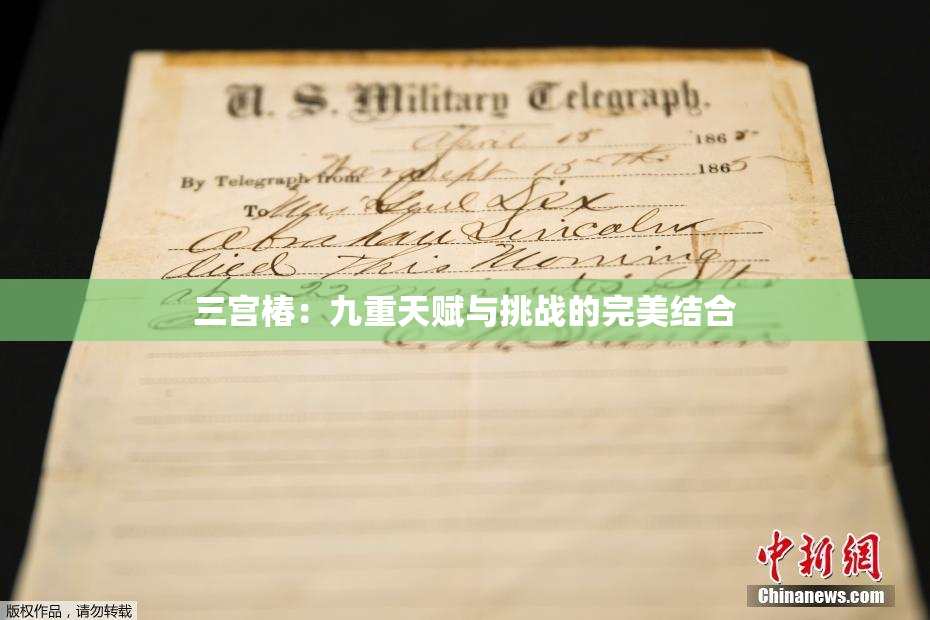 U. S. Military Telegraph.
April 15 1865
By Telegraph from War Dept 15th 1865
To Maj Genl Dix
Abraham Lincoln
died This Morning
at 22 minutes after
三宫椿：九重天赋与挑战的完美结合
中新网
Chinanews.com
版权作品，请勿转载